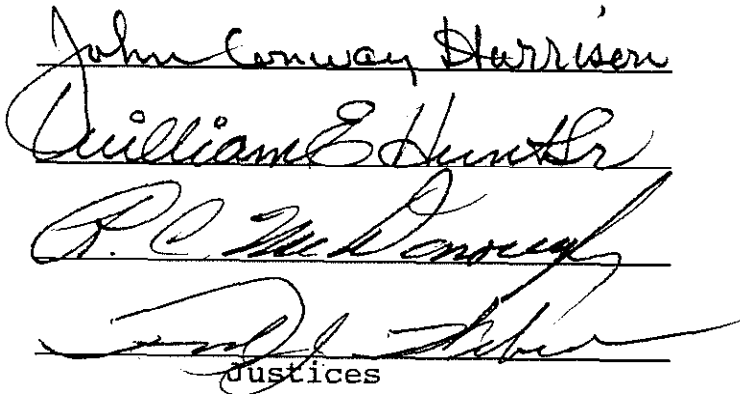 John Conway Harrison
William E Hunt Sr
R. C. McDonough
Fred J. Weber
Justices